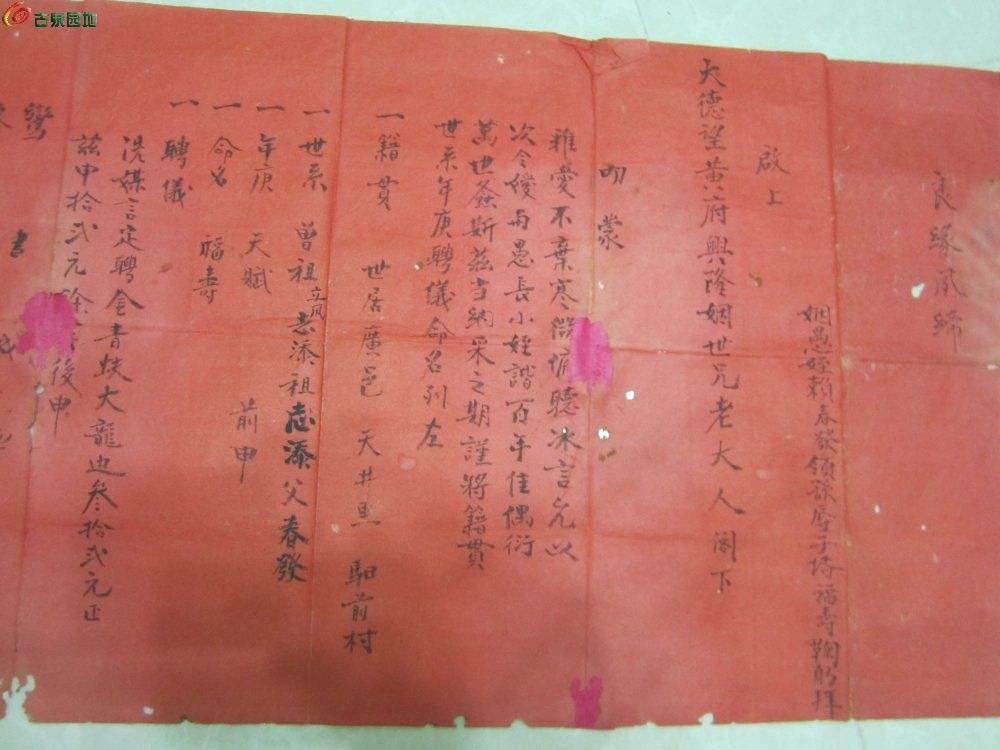 良緣夙締
姻愚姪賴春發領孫辱子堉福壽鞠躬拜
啟上
大德望黃府興隆姻世兄老大人閣下
叨蒙
雅愛不棄寒微俯聽冰言允以
次令嬡與愚長小姪諧百年佳偶衍
萬世螽斯茲当納采之期謹將籍貫
世系年庚聘儀命名列左
一籍貫 世居廣邑 天井 前村
一世系 曾祖立凤志添祖志添父春發
一年庚 天賦 前申
一命名 福壽
一聘儀
憑媒言定聘金青蚨大龍邊叁拾弍元正
茲申拾弍元餘 後申
鸞書
古泉园地